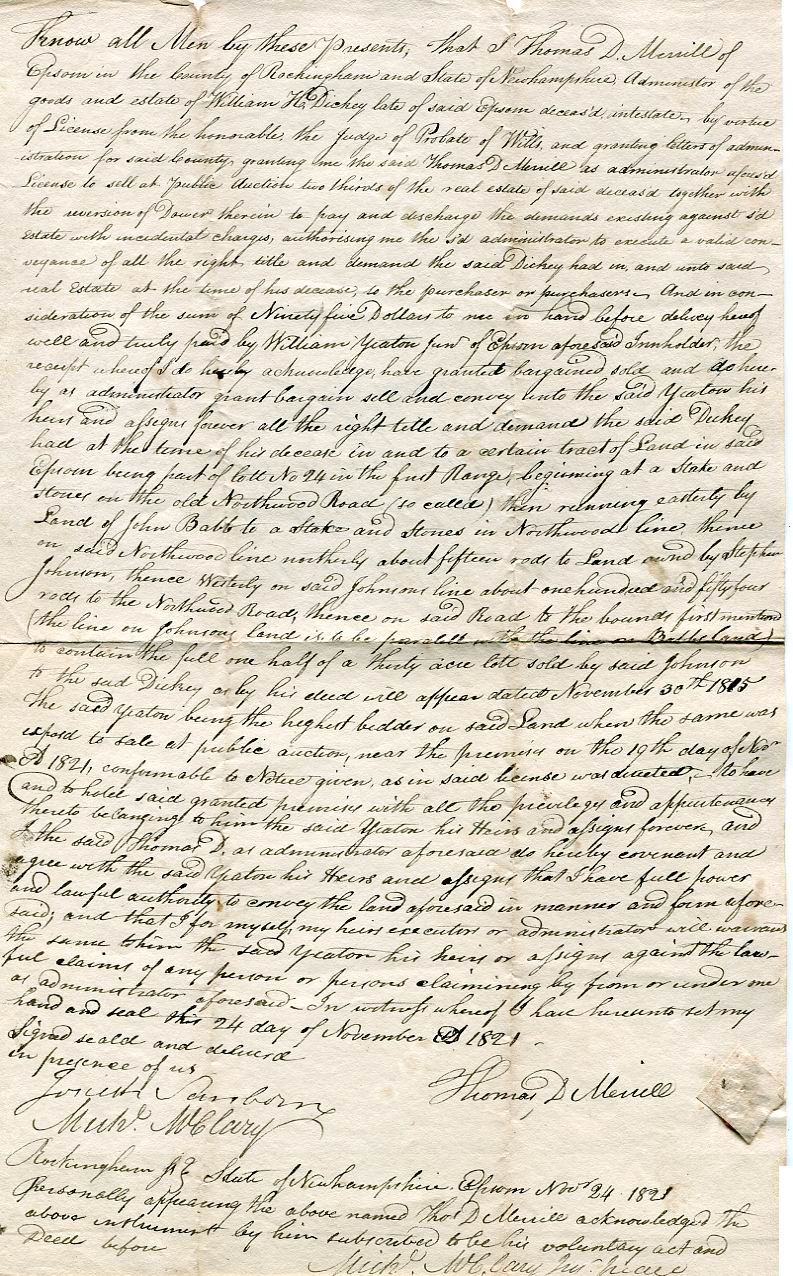 Know all Men by these Presents, that I Thomas D. Merrill of
Epsom in the County of Rockingham and State of Newhampshire Administor of the
goods and estate of William H. Dickey late of said Epsom deceasd, intestate, by virtue
of License from the honorable the Judge of Probate of Wills, and granting letters of admin-
istration for said County, granting me the said Thomas D Merrill as administrator afores'd
License to sell at Public Auction two thirds of the real estate of said deceasd together with
the reversion of Dower therein to pay and discharge the demands existing against s'd
Estate with incidental charges, authorising me the s'd administrator to execute a valid con-
veyance of all the right, title and demand the said Dickey had in, and unto said
real Estate at the time of his decease, to the purchaser or purchasers. And in con-
sideration of the sum of Ninety five Dollars to me in hand before delivey hereof
well and truly paid by William Yeaton Junr of Epsom aforesaid Innholder, the
receipt whereof I do hereby acknowledge, have granted bargained sold and do here-
by as administrator grant bargain sell and convey unto the said Yeaton his
heirs and assigns forever all the right title and demand the said Dickey
had at the time of his decease in and to a certain tract of Land in said
Epsom being part of lott No 24 in the first Range, beginning at a Stake and
Stones on the old Northwood Road (so called) then running easterly by
Land of John Babb to a Stake and Stones in Northwood line thence
on said Northwood line northerly about fifteen rods to Land ownd by Stephen
Johnson, thence Westerly on said Johnsons line about one hundred and fifty four
rods to the Northwood Road, thence on said Road to the bounds first mention
(the line on Johnsons land is to be paralell with the line on Babbs land)
to contain the full one half of a thirty acre lott sold by said Johnson
to the said Dickey as by his deed will appear dated November 30th 1815
The said Yeaton being the highest bidder on said Land when the same was
exposd to sale at public auction, near the premises on the 19th day of Novr
AD 1821, conformable to Notice given, as in said license was directed. To have
and to hold said granted premises with all the privileges and appurtenances
thereto belonging to him the said Yeaton his Heirs and assigns forever, and
I the said Thomas D. as administrator aforesaid do hereby covenant and
agree with the said Yeaton his Heirs and assigns that I have full power
and lawful authority to convey the land aforesaid in manner and form afore-
said; and that I for myself, my heirs executors or administrator will warrant
the same to him the said Yeaton his heirs or assigns against the law-
ful claims of any person or persons claimining by from or under me
as administrator aforesaid - In witness whereof I have hereunto set my
hand and seal this 24 day of November AD 1821 -
Signed seald and deliverd
in presence of us
Josiah Sanborn
Thomas D Merrill
Michl. McClary
Rockingham Ss State of Newhampshire. Epsom Novr 24 1821
Personally appearing the above named Thos D Merrill acknowledged the
above instrument by him subscribed to be his voluntary act and
Deed before
Michl. McClary Jus. Peace